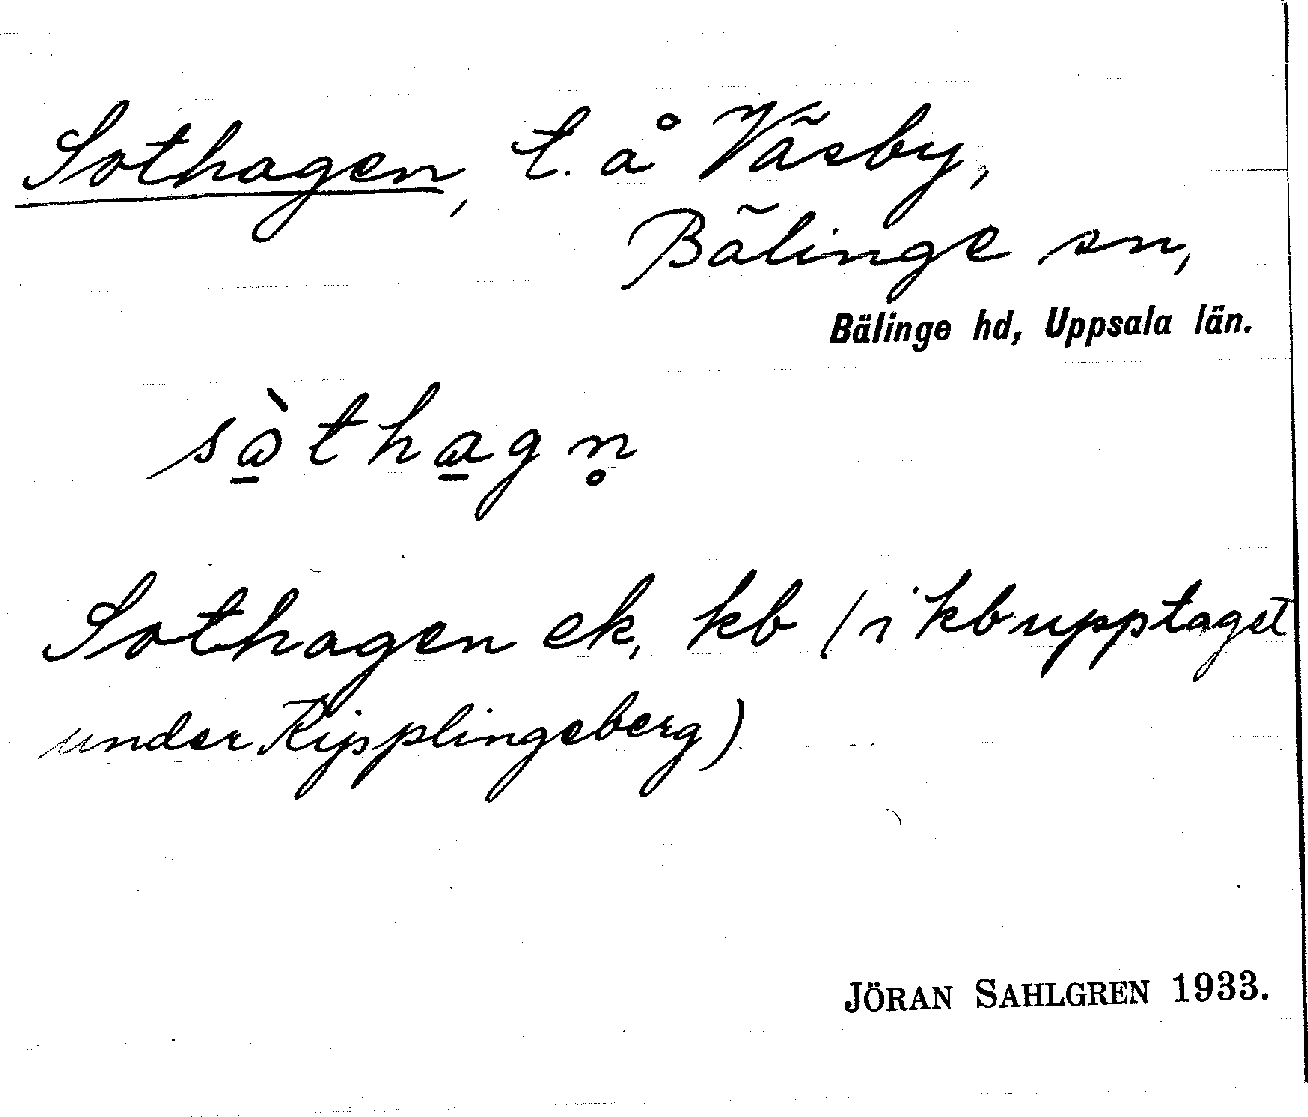 Sothagen, t. å Väsby,
Bälinge sn,
Bälinge hd, Uppsala län.
sὼ̠tha̠gn̥
Sothagen ek, kb (i kb upptaget
under Kipplingeberg)
JÖRAN SAHLGREN 1933.